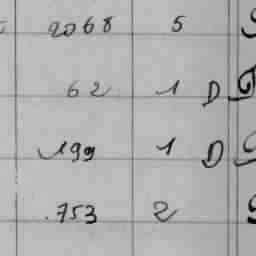 2068 5
62 1 D
199 1 D
753 2